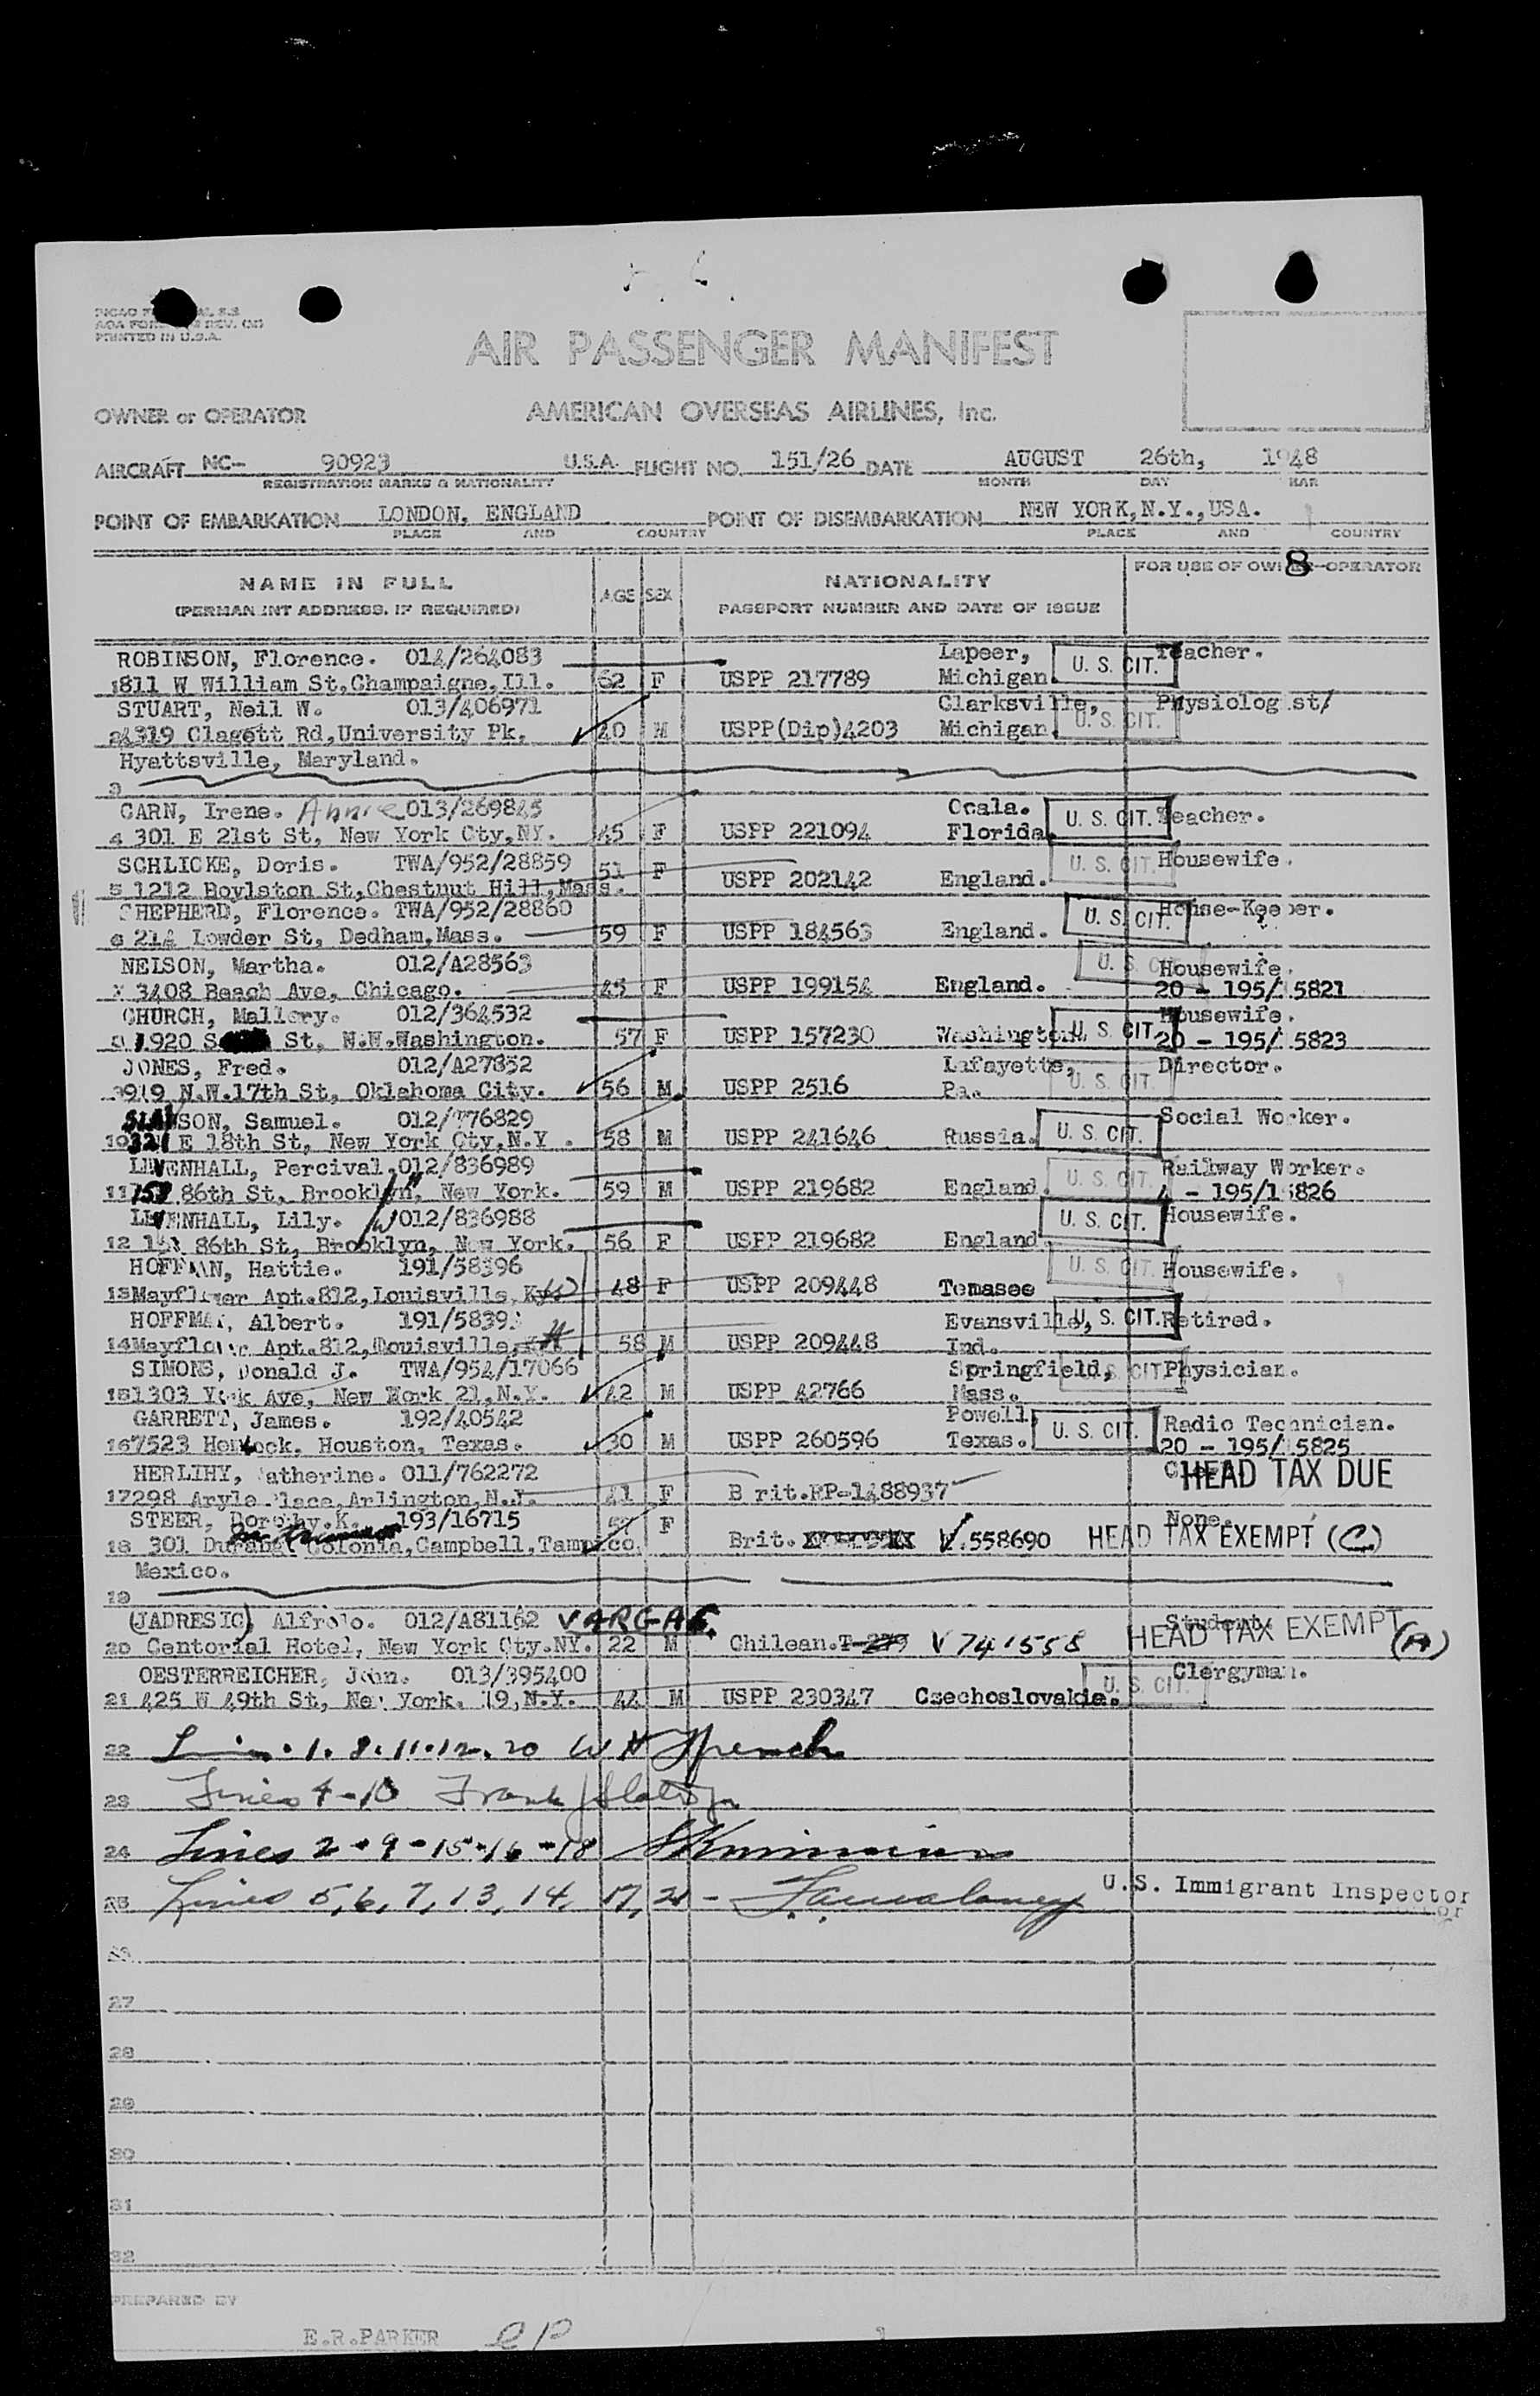 PRINTED IN U.S.A.
AIR PASSENGER MANIFEST
OWNER or OPERATOR AMERICAN OVERSEAS AIRLINES, Inc.
AIRCRAFT NC- 90923 U.S.A. FLIGHT NO. 151/26 DATE AUGUST 26th, 1948
REGISTRATION MARKS & NATIONALITY MONTH DAY
POINT OF EMBARKATION LONDON, ENGLAND POINT OF DISEMBARKATION NEW YORK, N.Y., USA.
PLACE AND COUNTRY PLACE AND COUNTRY
8
NAME IN FULL AGE SEX NATIONALITY FOR USE OF OWNER-OPERATOR
(PERMANENT ADDRESS, IF REQUIRED) PASSPORT NUMBER AND DATE OF ISSUE
ROBINSON, Florence. 014/264083 Lapeer, U. S. CIT. Teacher.
1 811 W William St, Champaigne, Ill. 62 F USPP 217789 Michigan
STUART, Neil W. 013/406971 Clarksville, Physiologist/
2 4319 Clagett Rd, University Pk. 40 M USPP(Dip)4203 Michigan. U. S. CIT.
Hyattsville, Maryland.
3
CARN, Irene. Annie 013/269845 Ocala. U. S. CIT. Teacher.
4 301 E 21st St, New York Cty, NY. 45 F USPP 221094 Florida
SCHLICKE, Doris. TWA/952/28859 51 F U. S. CIT. Housewife.
5 1212 Boylston St, Chestnut Hill, Mass. USPP 202142 England.
SHEPHERD, Florence. TWA/952/28860 U. S. CIT. House-Keeper.
6 214 Lowder St, Dedham, Mass. 59 F USPP 184563 England.
NELSON, Martha. 012/A28563 U. S. CIT. Housewife.
7 3408 Beach Ave, Chicago. 45 F USPP 199154 England. 20 - 195/15821
CHURCH, Mallery. 012/364532 Housewife.
8 1920 St, N.W. Washington. 57 F USPP 157230 Washington. U. S. CIT. 20 - 195/15823
JONES, Fred. 012/A27852 Lafayette, Director.
9 919 N.W. 17th St, Oklahoma City. 56 M USPP 2516 Pa. U. S. CIT.
SON, Samuel. 012/776829 Social Worker.
10 321 E 18th St, New York Cty, N.Y. 58 M USPP 241646 Russia. U. S. CIT.
LEVENHALL, Percival. 012/836989 Railway Worker.
11 86th St, Brooklyn, New York. 59 M USPP 219682 England. U. S. CIT. 4 - 195/15826
LEVENHALL, Lily. W 012/836988 U. S. CIT. Housewife.
12 86th St, Brooklyn, New York. 56 F USPP 219682 England
HOFFMAN, Hattie. 191/58396 U. S. CIT. Housewife.
13 Mayflower Apt. 812, Louisville, Ky. 48 F USPP 209448 Temasee
HOFFMAN, Albert. 191/5839 Evansville, U. S. CIT. Retired.
14 Mayflower Apt. 812, Louisville, 58 M USPP 209448 Ind.
SIMONS, Donald J. TWA/954/17066 Springfield, U. S. CIT. Physician.
15 1303 York Ave, New York 21, N.Y. 42 M USPP 42766 Mass.
GARRETT, James. 192/40542 Powell, U. S. CIT. Radio Technician.
16 7523 Hemlock, Houston, Texas. 30 M USPP 260596 Texas. 20 - 195/15825
HERLIHY, Catherine. 011/762272 HEAD TAX DUE
17 298 Aryle Place, Arlington, N.J. 41 F Brit. RP-1488937
STEER, Dorothy. K. 193/16715 57 F None.
18 301 Durango Colonia, Campbell, Tampico. Brit. V.558690 HEAD TAX EXEMPT (C)
Mexico.
19
(JADRESIC) Alfredo. 012/A81162 VARGAS. Student.
20 Centorial Hotel, New York Cty. NY. 22 M Chilean. V 741558 HEAD TAX EXEMPT (A)
OESTERREICHER, John. 013/395400 Clergyman.
21 425 W 49th St, New York. 19, N.Y. 44 M USPP 230347 Czechoslovakia. U. S. CIT.
22 Lines. 1. 8. 11. 12. 20 W H French
23 Lines 4-10 Frank J
24 Lines 2-9-15-16-18
25 Lines 5, 6, 7, 13, 14, 17, 21 - U.S. Immigrant Inspector
26
27
28
29
30
31
32
PREPARED BY
E.R.PARKER ep